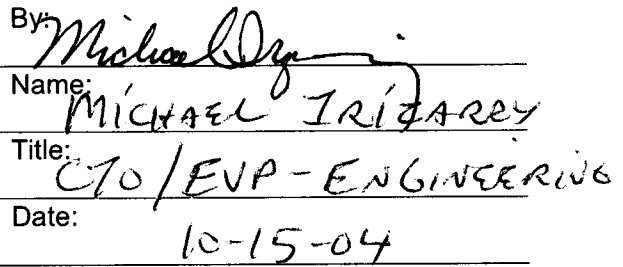 By: Michael Irizarry
Name: MICHAEL IRIZARRY
Title: CTO/EVP-ENGINEERING
Date: 10-15-04